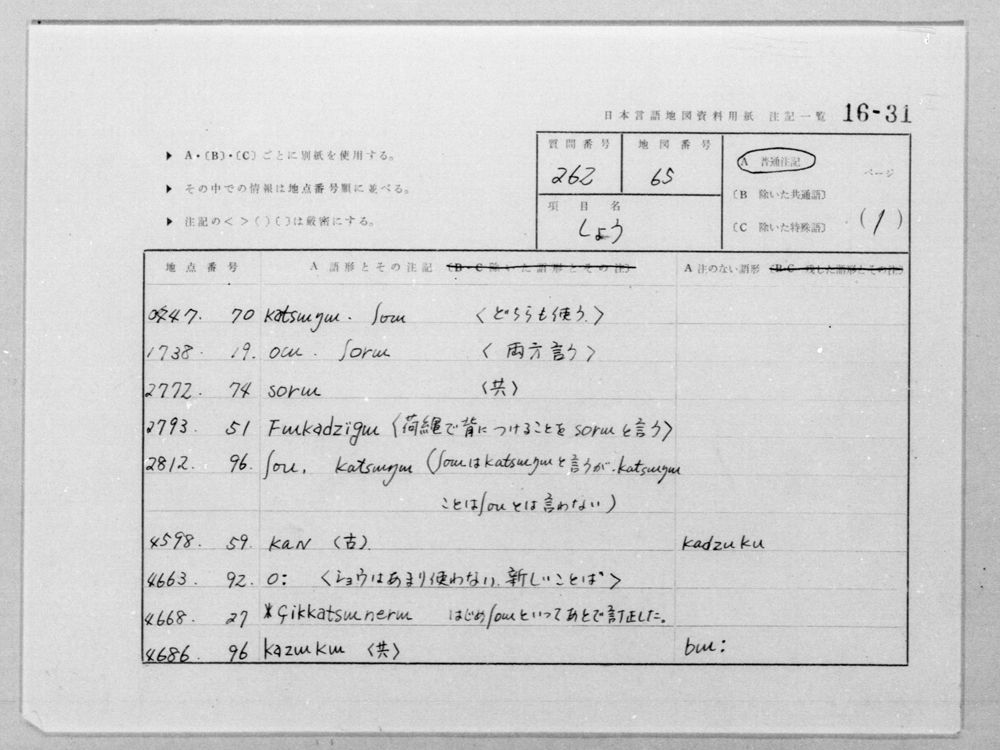 日本言語地図資料用紙 注記一覧 16-31
▶ A・〔B〕・〔C〕ごとに別紙を使用する。
▶ その中での情報は地点番号順に並べる。
▶ 注記の< >( )〔 〕は厳密にする。
質問番号 262
地図番号 65
項目名 しょう
A 普通注記
〔B 除いた共通語〕
〔C 除いた特殊語〕
ページ
(1)
地点番号 A 語形とその注記 〔B・C 除いた語形とその注〕 A 注のない語形 〔B・C 残した語形とその注〕
0747. 70 katsɯŋɯ. ʃoɯ 〈どちらも使う.〉
1738. 19. oɯ. ʃorɯ 〈両方言う〉
2772. 74 sorɯ 〈共〉
2793. 51 Fɯkadzigɯ 〈荷縄で背につけることを sorɯ と言う〉
2812. 96. ʃoɯ. katsɯŋɯ (ʃoɯはkatsɯŋɯと言うが.katsɯŋɯ
ことはʃoɯとは言わない)
4598. 59. kaN 〈古〉. kadzuku
4663. 92. o: 〈ショウはあまり使わない.新しいことば〉
4668. 27 *çikkatsɯnerɯ はじめʃoɯといってあとで訂正した。
4686. 96 kazɯkɯ 〈共〉 bɯ: